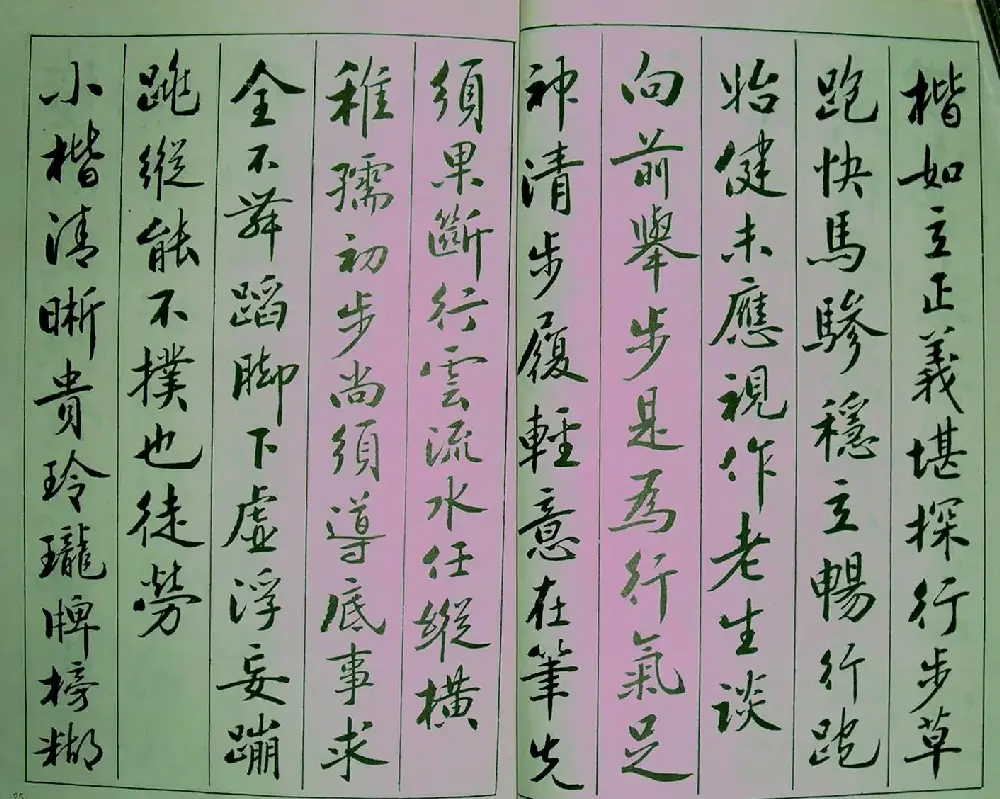 楷如立正義堪探行步草
跑快馬驂穩立暢行跑
始健未應視作老生談
向前舉步是為行氣足
神清步履輕意在筆先
須果斷行雲流水任縱橫
稚孺初步尚須導底事求
全不舞蹈脚下虛浮妄蹦
跳縱能不撲也徒勞
小楷清晰貴玲瓏牌榜糊